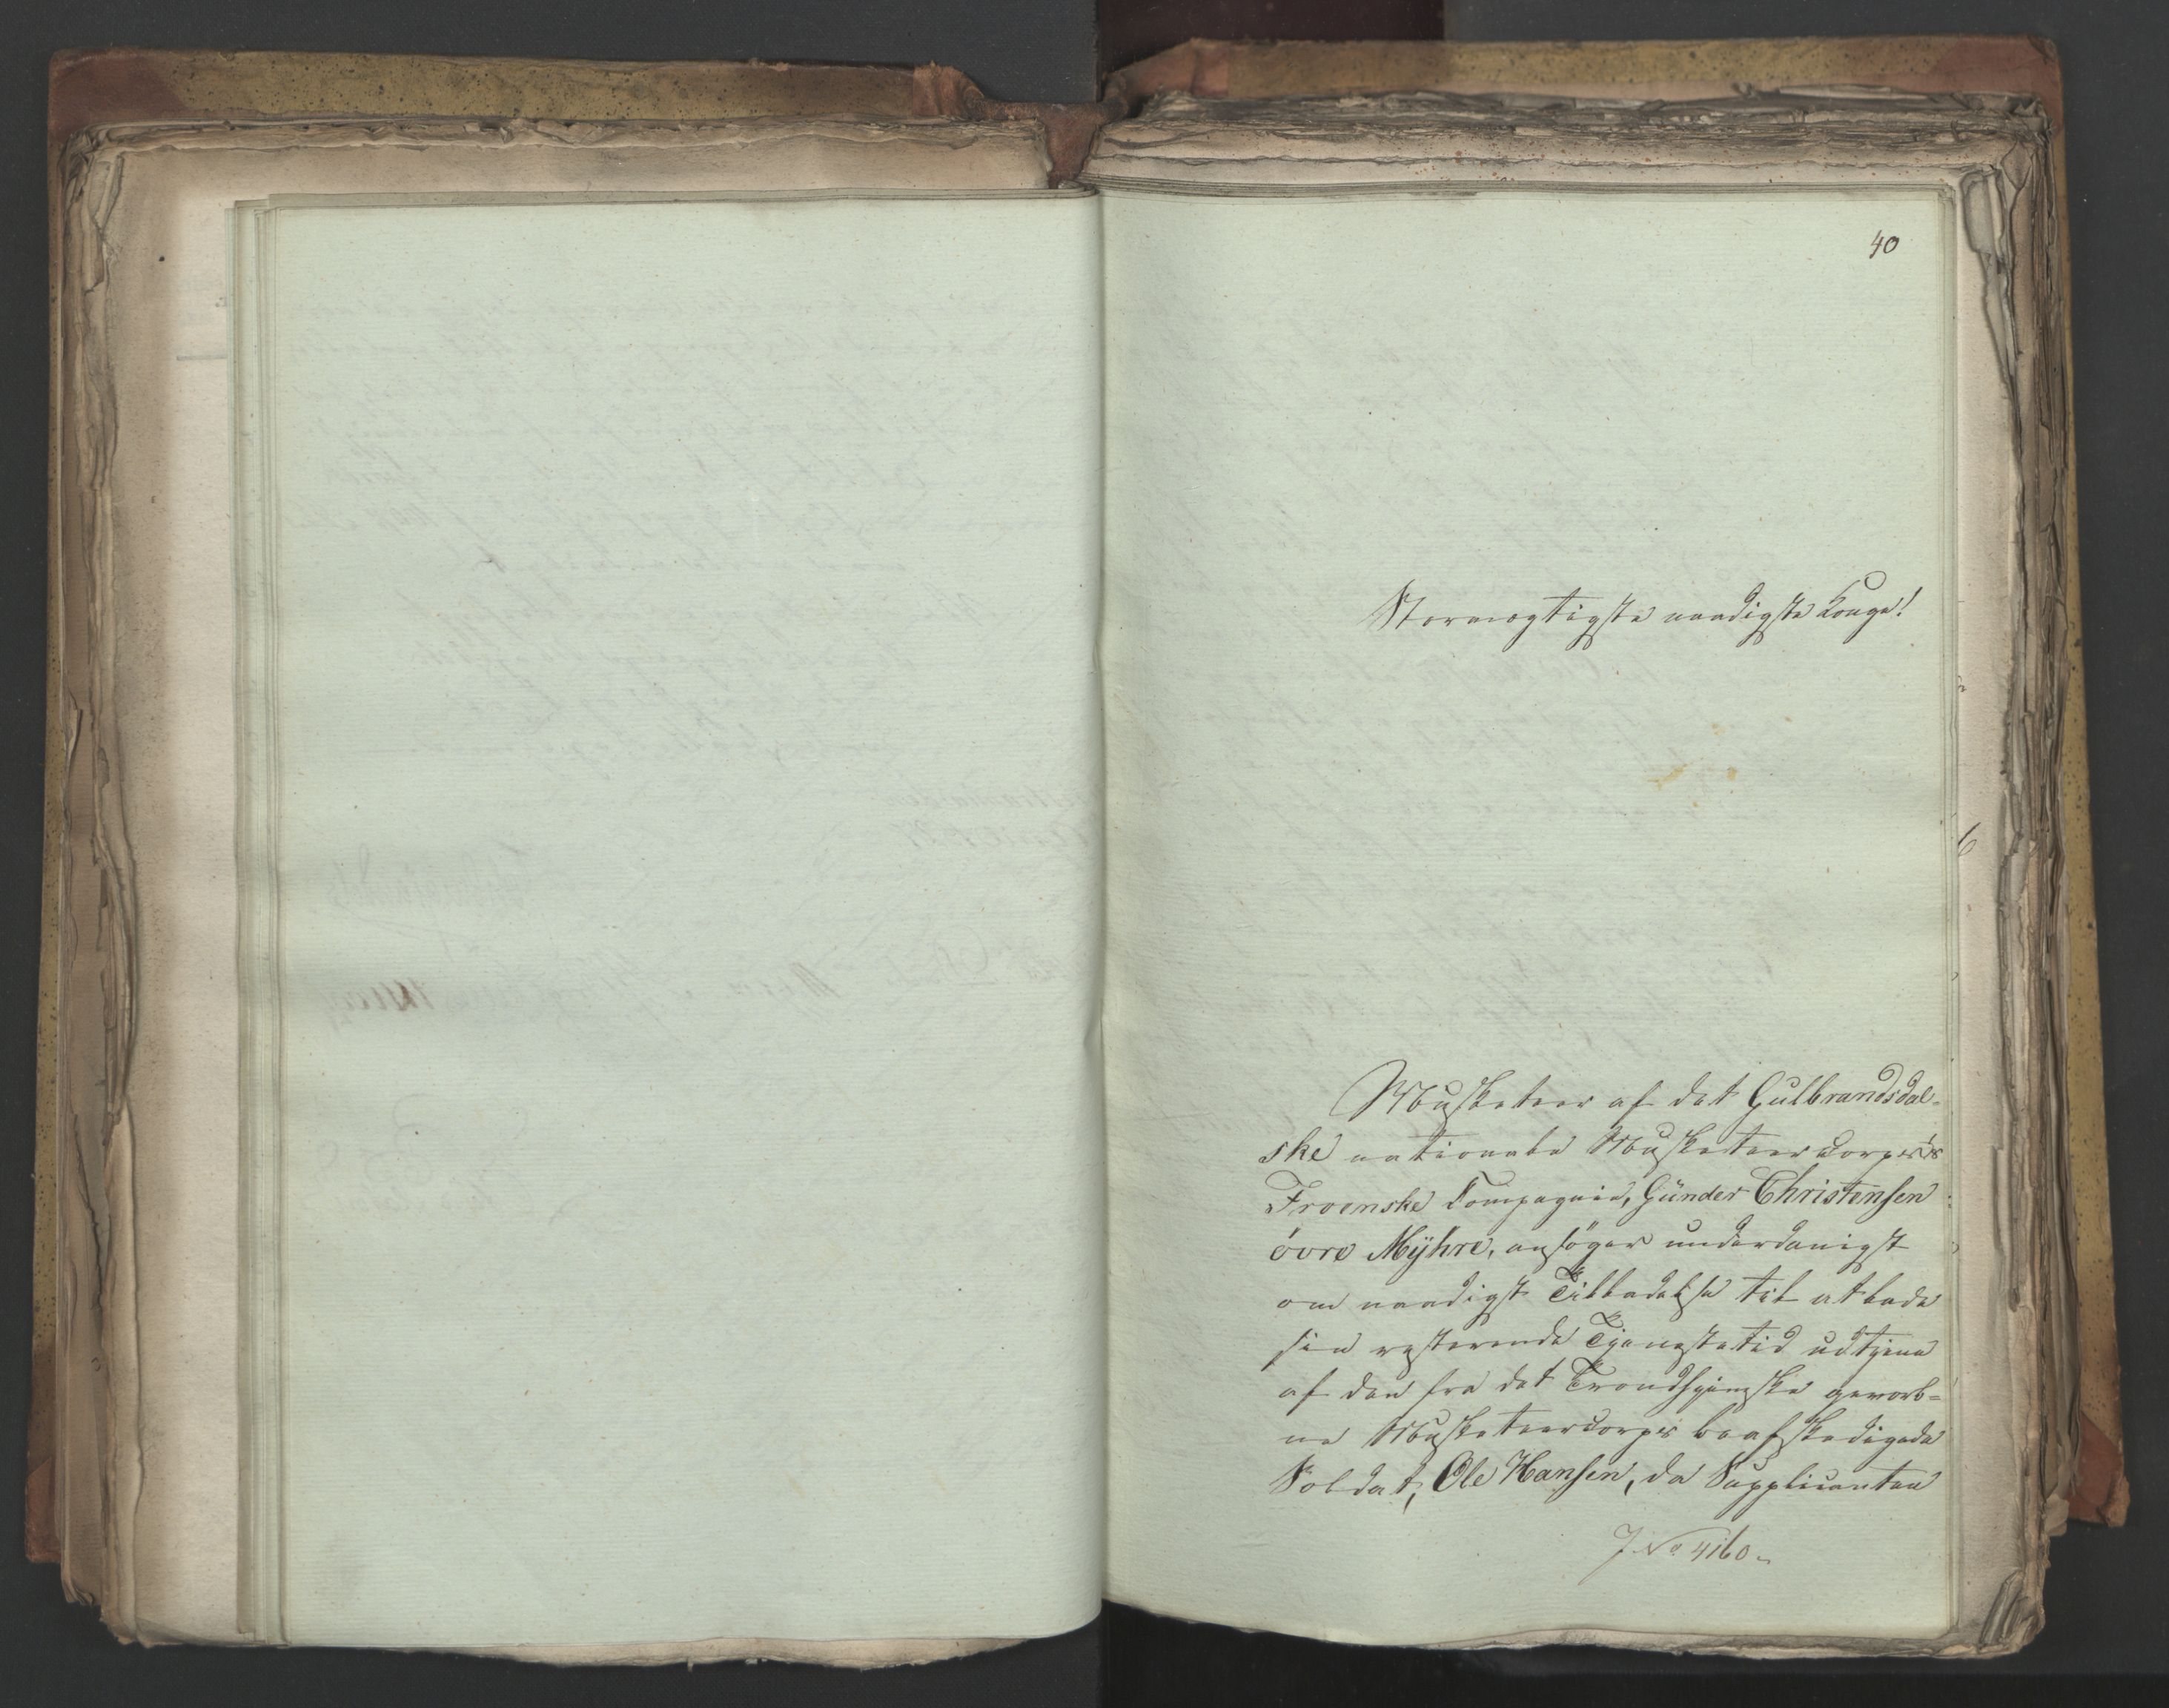 40
Stormægtigste naadigste Konge!
Musketeer af det Gulbrandsdal-
ske nationale Musketeercorps's
Froenske Compagnie, Günder Christensen
övre Mÿhre, ansöger underdanigst
om naadigst Tilladelse til at lade
sin resterende Tjenestetid udtjene
af den fra det Trondhjemske gevorb-
ne Musketeercorps beafskedigede
Soldat, Ole Hansen, da Supplicanten
J. No 4160.